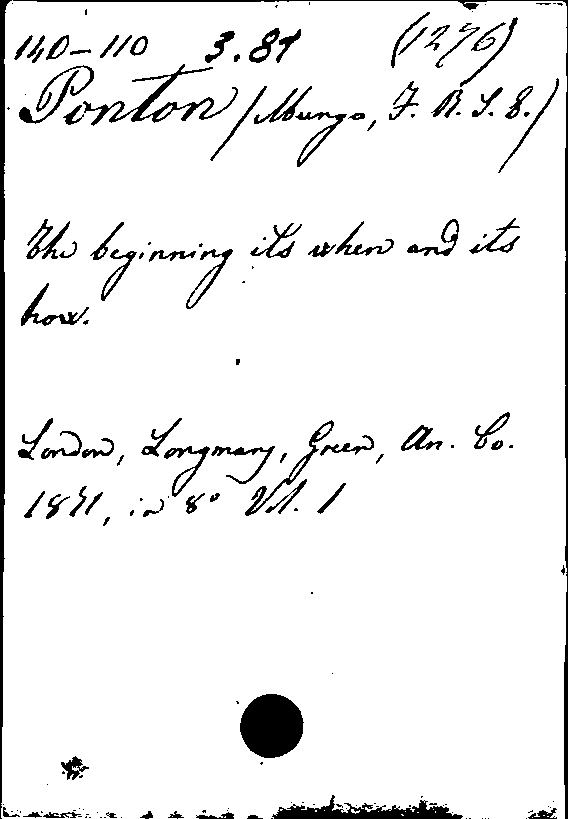 140-110 3.81 (1276)
Ponton (Mungo, F. R. S. E.)
The beginning its when and its
how.
London, Longmans, Green, An. Co.
1871, in 8° Vol. 1